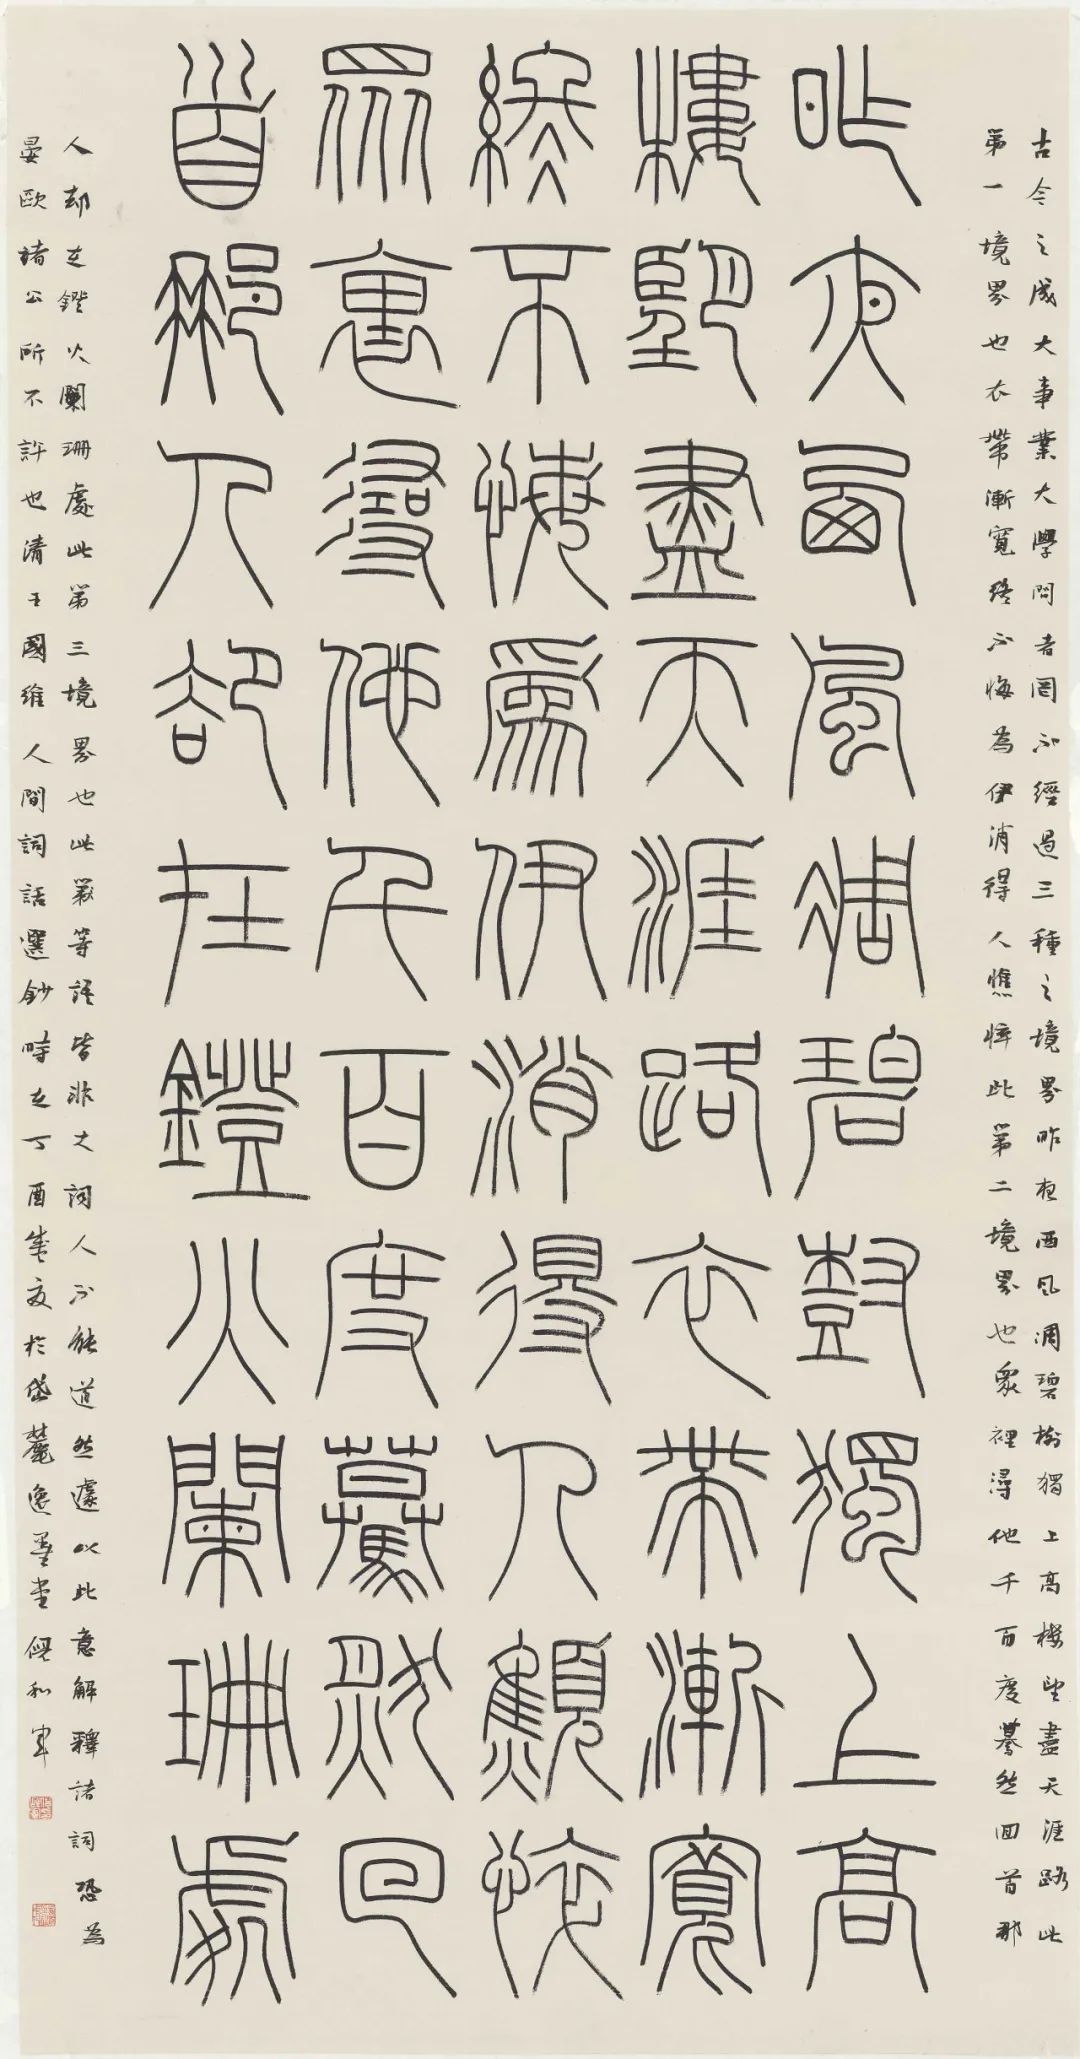 古今之成大事業大學問者罔不經過三種之境界昨夜西風凋碧樹獨上高樓望盡天涯路此
第一境界也衣帶漸寬終不悔為伊消得人憔悴此第二境界也眾裡尋他千百度驀然回首那
昨夜西風凋碧樹獨上高
樓望盡天涯路衣帶漸寬
終不悔為伊消得人憔悴
眾裏尋他千百度驀然回
首那人卻在鐙火闌珊處
人却在鐙火闌珊處此第三境界也此等語皆非大詞人不能道然遽以此意解釋諸詞恐為
晏歐諸公所不許也清王國維人間詞話選鈔時在丁酉盛夏於岱麓逸墨堂倪和軍